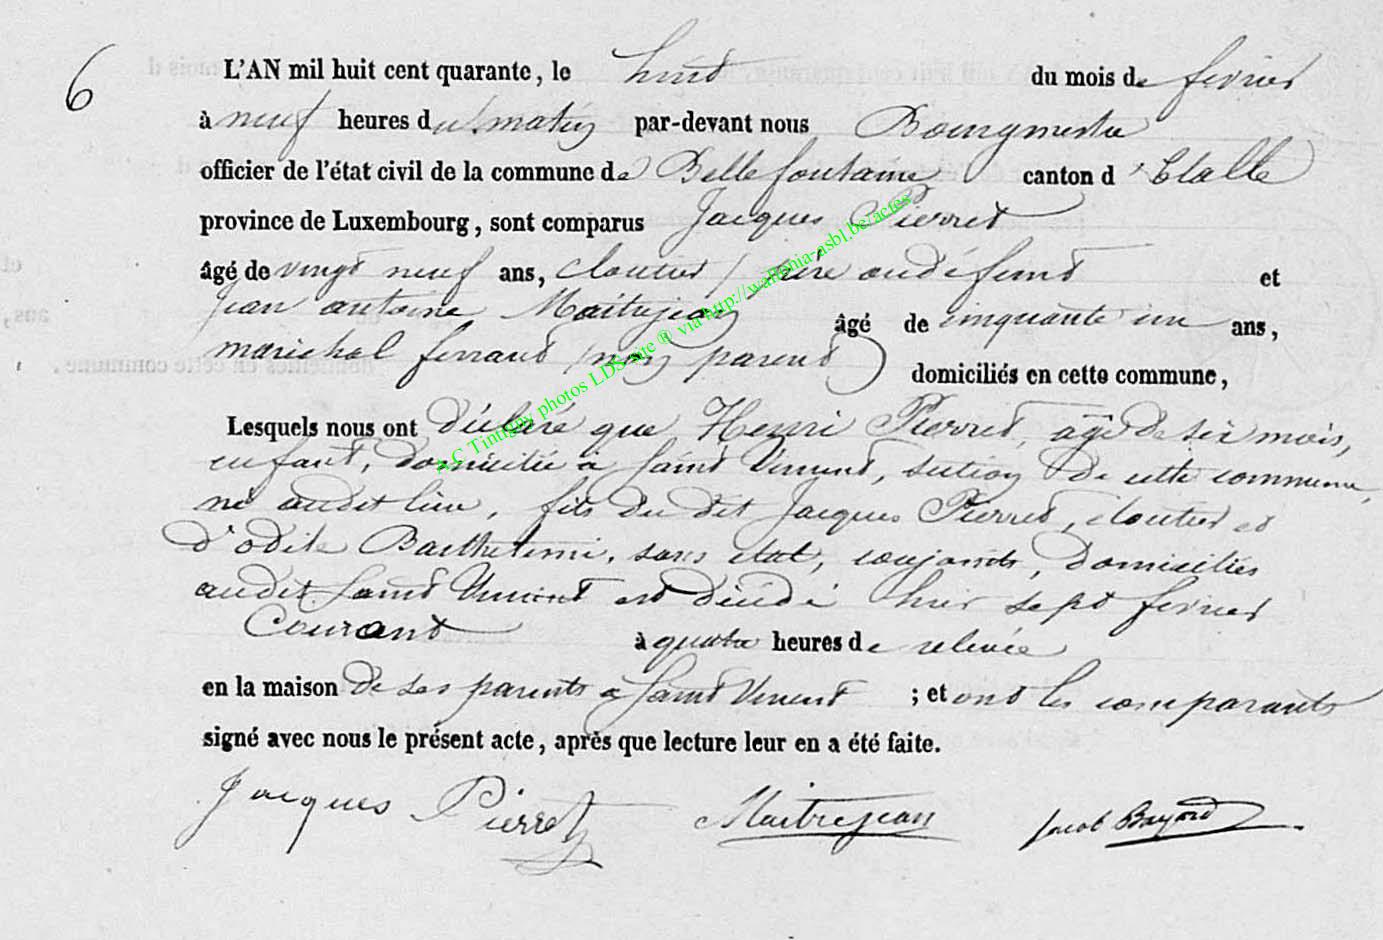 6
L'AN mil huit cent quarante, le huit du mois de fevrier
à neuf heures du matin par-devant nous Bourgmestre
officier de l'état civil de la commune de Bellefontaine canton d'Etalle
province de Luxembourg, sont comparus Jacques Pierret
âgé de vingt neuf ans, cloutier / père au défunt et
Jean antoine Maitrejean âgé de cinquante un ans,
maréchal ferrant / non parent domiciliés en cette commune,
Lesquels nous ont déclaré que Henri Pierret, âgé de six mois,
enfant, domicilié à Saint Vincent, section de cette commune,
né audit lieu, fils du dit Jacques Pierret, cloutier et
d'odile Barthelemi, sans état, conjoints, domiciliés
audit Saint Vincent est décédé hier sept fevrier
Courant à quatre heures de relevée
en la maison de ses parents à Saint Vincent ; et ont les comparants
signé avec nous le présent acte, après que lecture leur en a été faite.
Jacques Pierret Maitrejean Jacob Bayard
A.C Tintigny photos LDS site ® via http://wallonia-asbl.be/actes